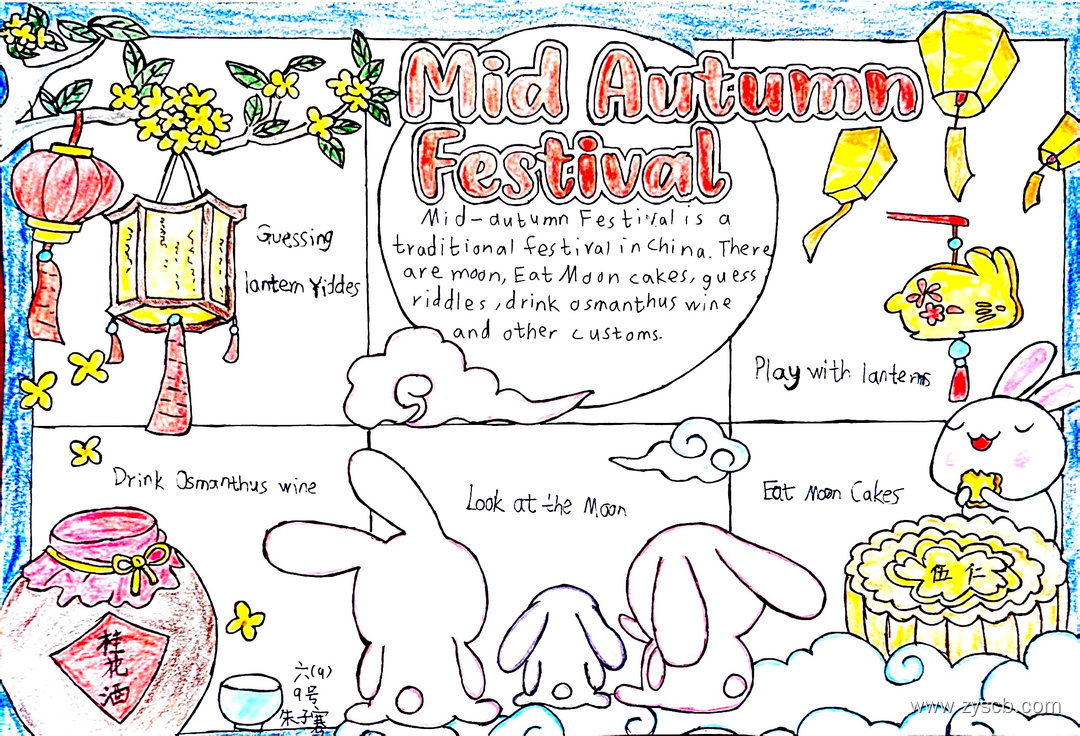 Mid Autumn
Festival
Mid-autumn Festival is a
traditional festival in China. There
are moon, Eat Moon cakes, guess
riddles, drink osmanthus wine
and other customs.
Guessing
lantern Yiddes
Play with lanterns
Drink Osmanthus wine
Look at the Moon
Eat Moon Cakes
伍仁
桂花酒
六(9)
9号
www.zyscb.com